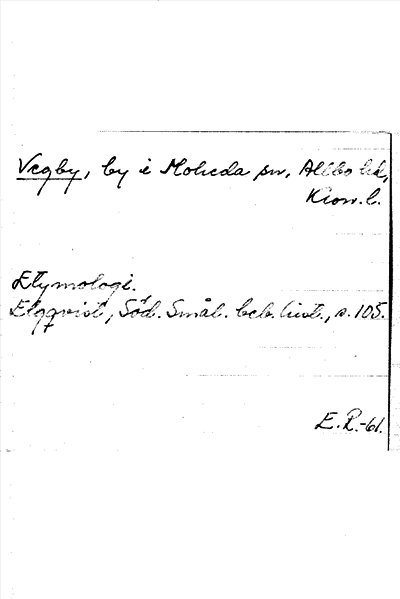 Vegby, by i Moheda sn, Allbo hd,
Kron. l.
Etymologi.
Elgqvist, Söd. Smål. beb. hist., s. 105.
E. R.-61.